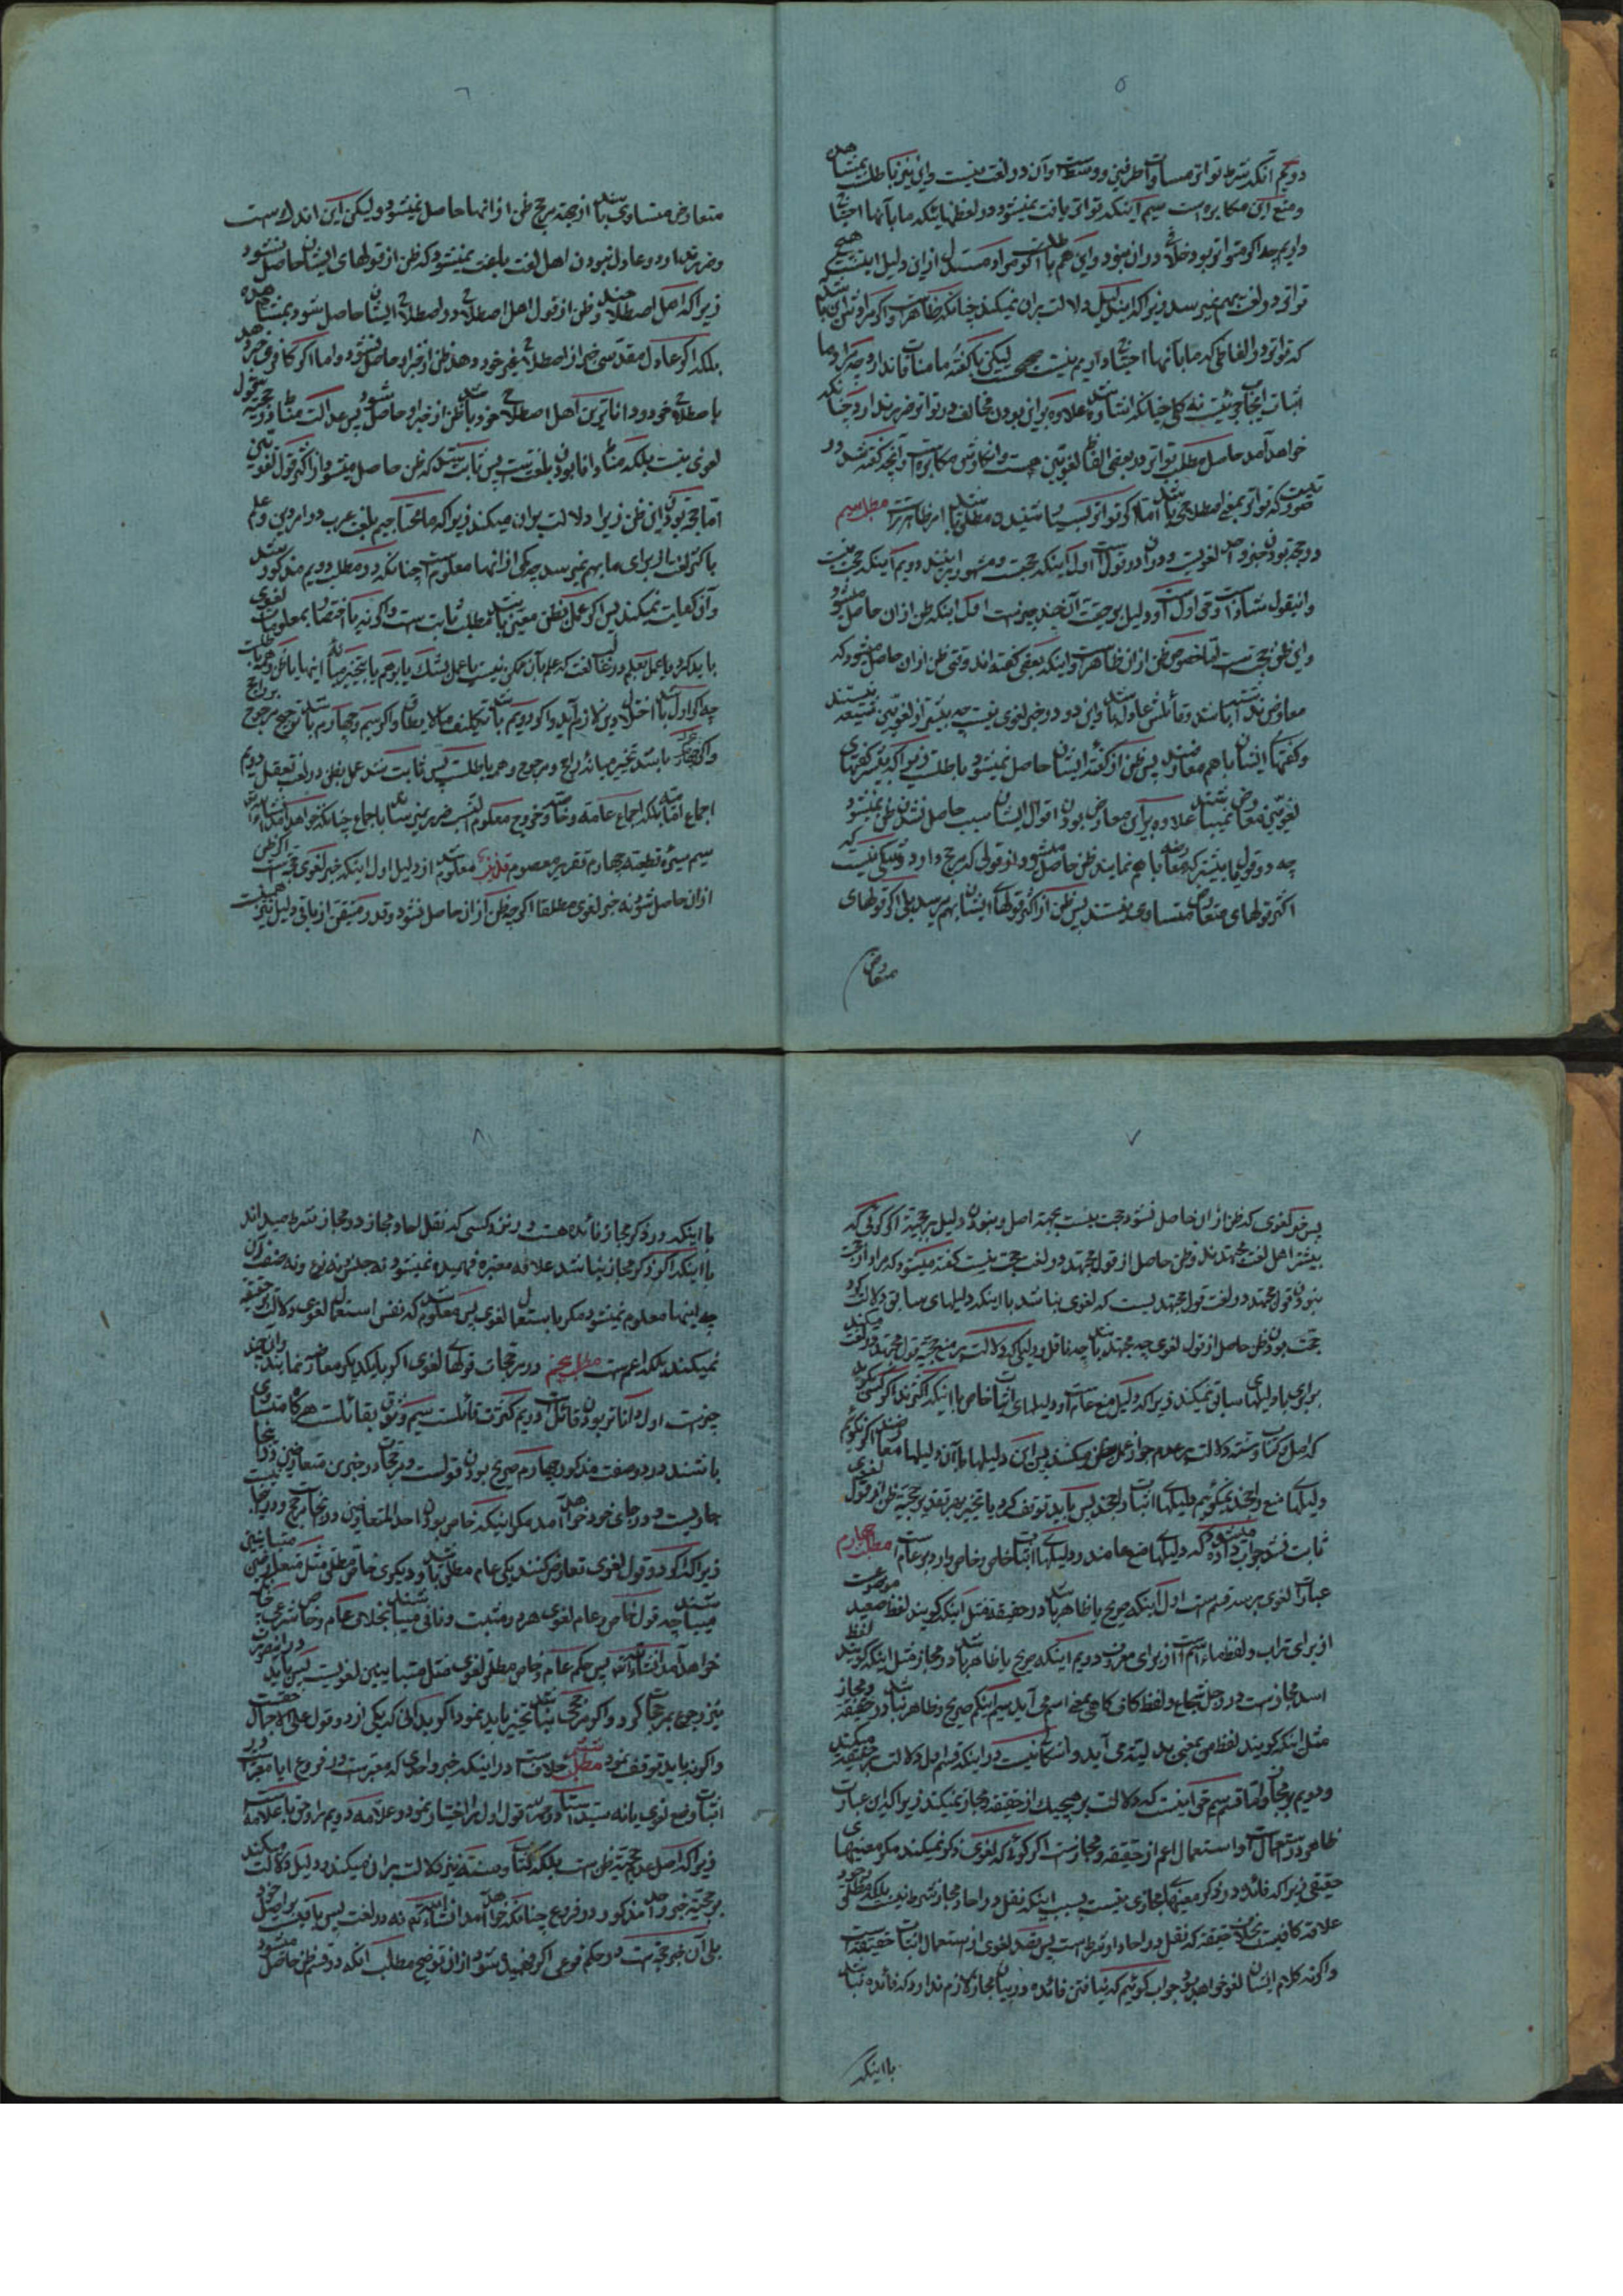 ۵
دویم آنکه شرط تواتر مساوات طرفین و وسط است و آن در لغت نیست و این نیز باطلست بمشاهده
و منع این مکابره است سیم اینکه تواتر یافت نمیشود در لفظهائیکه ما بآنها احتیاج
داریم چه اگر متواتر بود خلاف در آن نبود و این هم باطلست اگر مراد مستدل از این دلیل اینست که هیچ
تواتر در لغت بهم نمیرسد زیرا که این دلیل دلالت بر آن نمیکند چنانکه ظاهر است و اگر مرادش این باشد
که تواتر در الفاظی که ما بآنها احتیاج داریم نیست صحیح است لیکن با گفته ما منافات ندارد
خواهد آمد حاصل مطلب تواتر در بعضی الفاظ لغویین هست و انکارش مکابره است و آنچه گفته شد در
صورتیست که تواتر بمعنی اصطلاحی باشد اما اگر تواتر بسیار شنیدن مطلق باشد امر ظاهر تر است مطلب سیم
در حجة بودن خبر واحد لغویست و در آن دو قول است اول اینکه حجت است و مشهور بر اینند دویم اینکه حجت نیست
و این قول شاذ است و قول اول قوی است و دلیل بر حجیت آن چند چیز است اول اینکه ظن از آن حاصل میشود
و این ظن حجت است اما حصول ظن از آن ظاهر است و اینکه بعضی گفته‌اند وقتی ظن از آن حاصل میشود که
معارض نداشته باشد و قائلش عادل باشد و این دو در خبر لغوی نیست چه بیشتر از لغویین شیعه نیستند
و گفتهای ایشان با هم معارضند پس ظن از گفته ایشان حاصل نمیشود باطلست زیرا که بیشتر گفتهای
لغویین معارض نمیباشند علاوه بر این معارض بودن اقوال ایشان سبب حاصل نشدن ظن نمیشود
چه دو قول یا بیشتر که معارضه با هم نمایند ظن حاصل میشود از قولی که مرجح دارد و شکی نیست که
اکثر قولهای متعارض متساوی نیستند پس ظن از اکثر قولهای ایشان بهم میرسد بلی اگر قولهای
متعارض
۶
متعارض متساوی باشند از جهة مرجح ظن از آنها حاصل نمیشود و لیکن این اندک است
و ضرر ندارد و عادل نبودن اهل لغت باعث نمیشود که ظن از قولهای ایشان حاصل نشود
زیرا که اهل اصطلاح هستند و ظن از قول اهل اصطلاح در اصطلاح ایشان حاصل شود بمشاهده
بلکه اگر عادل مقدسی خبر از اصطلاح غیر خود دهد ظن از خبر او حاصل نشود و اما اگر کافری خبر دهد
باصطلاح خود و داناترین اهل اصطلاح خود باشد ظن از خبر او حاصل شود پس عدالت مناط در حجیة قول
لغوی نیست بلکه مناط دانا بودن بلغتست پس ثابت شد که ظن حاصل میشود از اکثر قول لغویین
اما حجة بودن این ظن زیرا دلالت بر آن میکند زیرا که ما محتاجیم بلغت عرب در امر دین و علم
باکثر لغت از برای ما بهم نمیرسد چه کمی از آنها معلومست چنانکه در مطلب دویم مذکور شد
و آن کفایت نمیکند پس اگر عمل بظن معین باشد مطلب ثابت است و اگر نه یا اختصار بمعلومات لغوی
اجماع ... بلکه اجماع عامه و خاصه و خروج معلوم النسب ضرر نمیرساند باجماع چنانکه خواهد آمد
سیم سیره قطعیه چهارم تقریر معصوم ... معلوم شد از دلیل اول اینکه خبر لغوی حجت است اگر ظن
از آن حاصل شود نه خبر لغوی مطلقا اگر چه ظن از آن حاصل نشود و قدر متیقن از باقی دلیل نیز همین است
۷
پس خبر لغوی که ظن از آن حاصل نشود حجت نیست بجهة اصل و نبودن دلیل بر حجیة اگر گوئی که
بیشتر اهل لغت مجتهدند و ظن حاصل از قول مجتهد در لغت حجت نیست گفته میشود که مراد از حجت
نبودن قول مجتهد در لغت قول مجتهدیست که لغوی نباشد با اینکه دلیلهای سابق دلالت کرد
حجت بودن ظن حاصل از قول لغوی چه مجتهد باشد چه ناقل و دلیلی که دلالت بر منع حجیة قول مجتهد در لغت میکند
برابری با دلیلهای سابق نمیکند زیرا که دلیل منع عام است و دلیلهای اثبات خاص با اینکه اکثرند اگر کسی بگوید
که اصل و کتاب و سنة دلالت بر عدم جواز عمل بظن میکنند پس این دلیلها با آن دلیلها معارضند اگر نگوئیم
دلیلهای منع راجحند نمیگوئیم دلیلهای اثبات راجحند پس باید توقف کرد یا تخییر بهر تقدیر حجیة ظن از قول لغوی
ثابت نشود جواب داده میشود که دلیلهای منع عامند و دلیلهای اثبات خاص و خاص وارد بر عام است مطلب چهارم
عبارات لغوی بر سه قسم است اول اینکه صریح یا ظاهر باشد در حقیقة مثل اینکه گویند لفظ صعید موضوعست
از برای تراب و لفظ ماء اسم است از برای معروف دویم اینکه صریح یا ظاهر باشد در مجاز مثل اینکه گویند لفظ
اسد مجاز است در رجل شجاع و لفظ کاف گاهی بمعنی اسم می‌آید سیم اینکه صریح و ظاهر نباشد در حقیقة و مجاز
مثل اینکه گویند لفظ من بمعنی بدلیة می‌آید و اشکال نیست در اینکه قسم اول دلالت بر حقیقة میکند
و دویم بر مجاز و اما قسم سیم حق اینست که دلالت بر هیچیک از حقیقة و مجاز نمیکند زیرا که این عبارت
ظاهر در استعمال است و استعمال اعم از حقیقة و مجاز است اگر گوئی که لغوی ذکر نمیکند مگر معنیهای
حقیقی زیرا که فائده در ذکر معنیهای مجازی نیست بسبب اینکه نقل در احاد مجاز شرط نیست بلکه وجود مطلق
علاقه کافیست بخلاف حقیقة که نقل در احاد او شرط است پس قصد لغوی از استعمال اثبات حقیقة است
و اگر نه کلام ایشان لغو خواهد بود جواب گوئیم که نیافتن فائده در بیان مجاز لازم ندارد که فائده نباشد
با اینکه
۸
با اینکه در ذکر مجاز فائده هست در نزد کسی که نقل احاد مجاز در مجاز شرط میداند
با اینکه اگر ذکر مجاز نباشد علاقه معتبره فهمیده نمیشود نه جنس نه نوع و نه صنف آن
چه اینها معلوم نمیشود مگر باستعمال لغوی پس معلوم شد که نفس استعمال لغوی دلالت بر حقیقة
نمیکند بلکه اعم است مطلب پنجم در مرجحات قولهای لغوی اگر با یکدیگر معارضه نمایند و آن چند
چیز است اول داناتر بودن قائل است دویم کثرت قائلست سیم وثوق بقائلست هر گاه متساوی
باشند در دو صفت مذکور چهارم صریح بودن قولست و مرجحات در خبرین متعارضین در اینجا
جاریست و در جای خود خواهد آمد مگر اینکه خاص بودن احد المتعارضین در اینجا مرجح نیست
زیرا که اگر دو قول لغوی تعارض کنند یکی عام مطلق باشد و دیگری خاص مطلق مثل متعارضین متباینین
میباشند چه قول خاص و عام لغوی هر دو مثبت و نافی میباشند بخلاف عام و خاص شرعی چنانکه
خواهد آمد انشاء الله پس حکم عام و خاص مطلق لغوی مثل متباینین لغویست پس باید در اینصورت
نیز رجوع بمرجحات کرد و اگر مرجحی نباشد تخییر باید نمود اگر بدانی که یکی از دو قول علی الاجمال حقست
و اگر نه باید توقف نمود مطلب ششم خلاف است در اینکه خبر واحدی که معتبر است در فروع ایا معتبر است در
اثبات وضع لغوی یا نه سید استاد قدس سره قول اول را اختیار نمود و علامه دویم را و حق با علامه است
زیرا که اصل عدم حجیة ظن است بلکه کتاب و سنة نیز دلالت بر آن میکند و دلیل دلالت میکند
بر حجیة خبر واحد مذکور در فروع چنانکه خواهد آمد انشاء الله نه در لغت پس باقیست بر اصل خود
بلی آن خبر حجت است در حکم فرعی اگر فهمیده شود از آن توضیح مطلب آنکه دو قسم ظن حاصل میشود